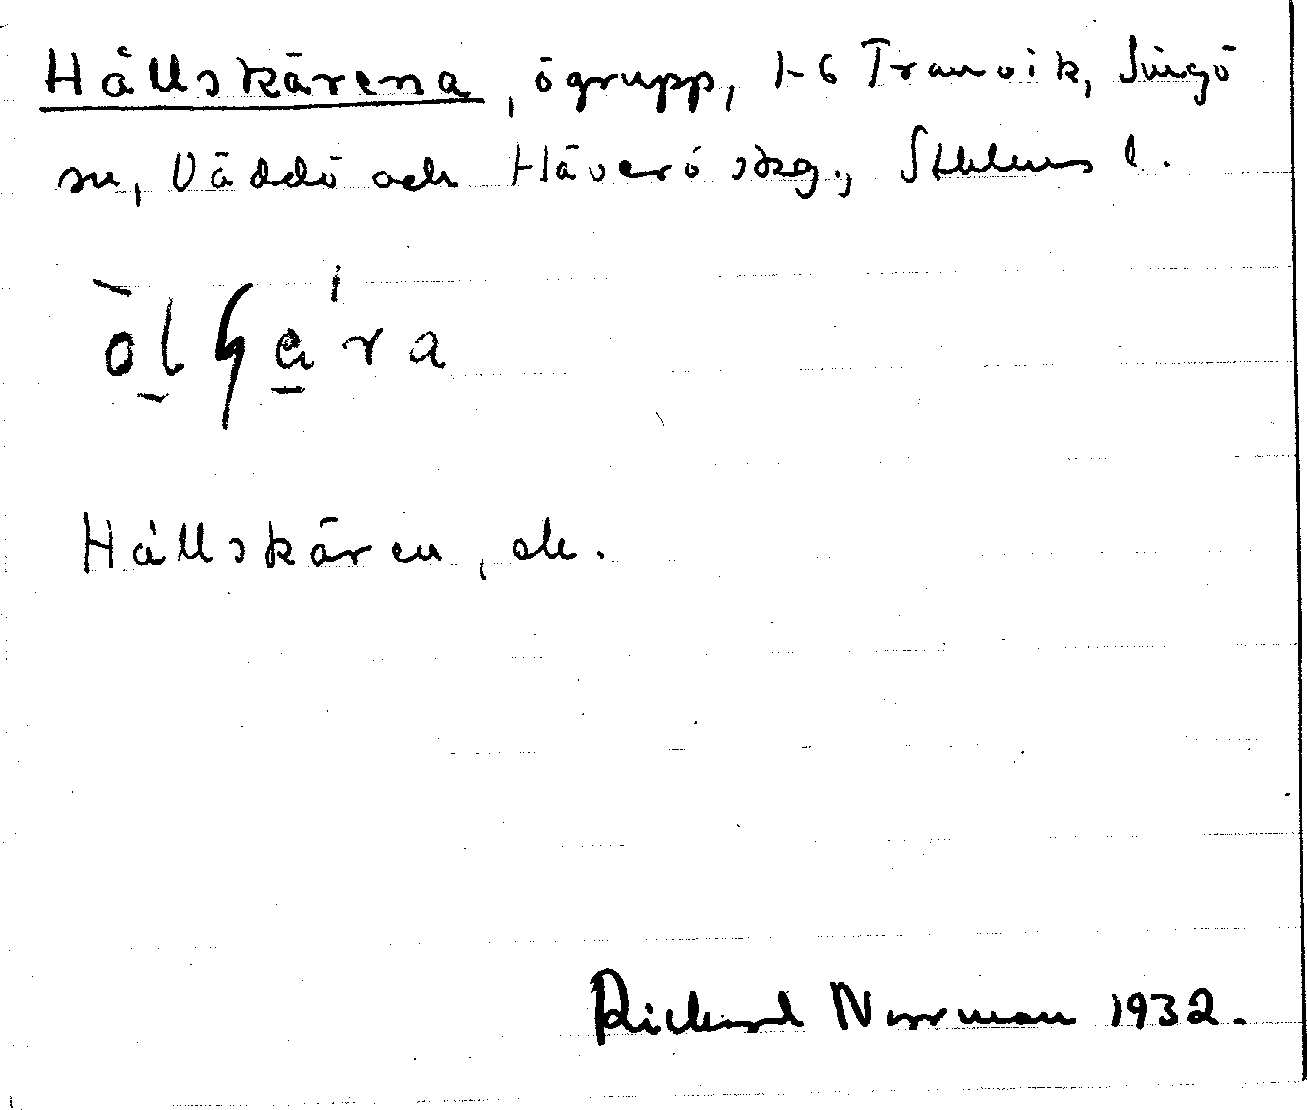 Hållskärena, ögrupp, 1-6 Tranvik, Singö
sn, Väddö och Häverö skg., Sthlms l.
Hållskären, ek.
Rickard Norrman 1932.